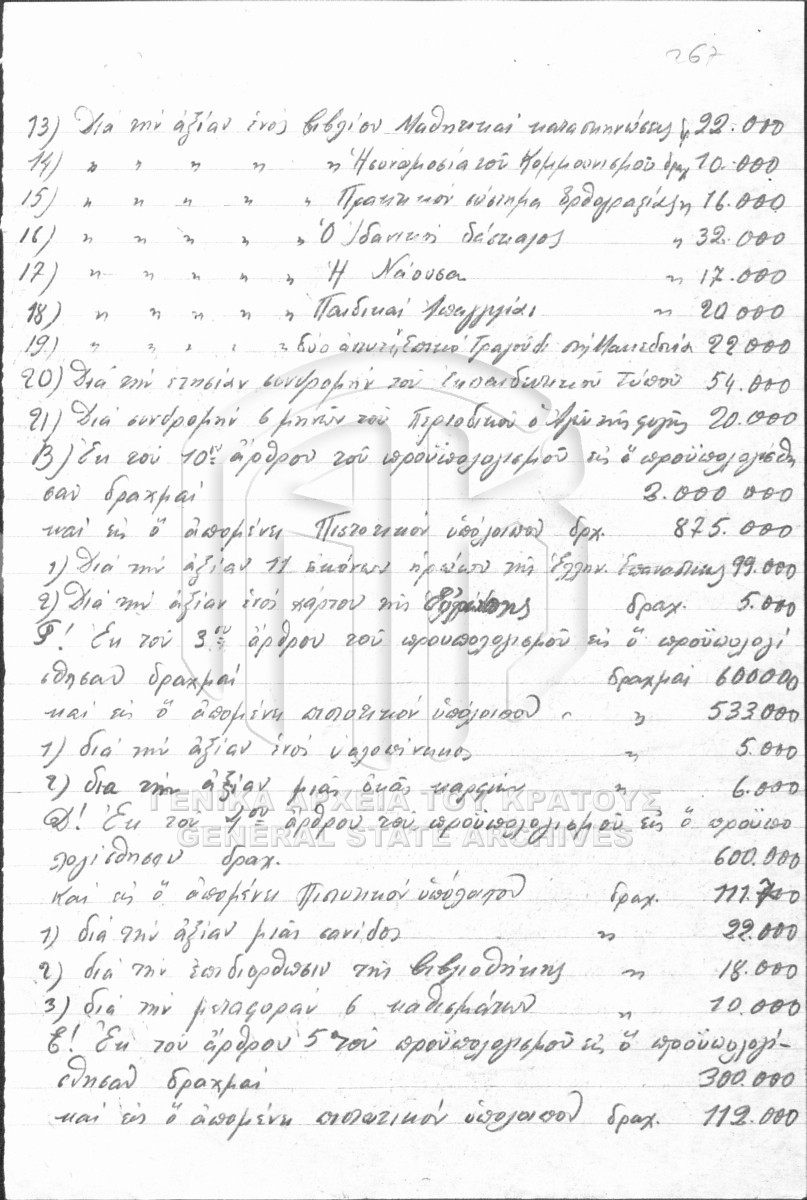 267
13) Διά τήν ἀξίαν ἑνός βιβλίου Μαθητικαί κατασκηνώσεις 22.000
14) " " " " " Ἡ συνωμοσία τοῦ Κομμουνισμοῦ δρχ 10.000
15) " " " " " Πρακτικόν σύστημα Ὀρθογραφίας " 16.000
16) " " " " " Ὁ Ἰδανικός δάσκαλος " 32.000
17) " " " " " Ἡ Νάουσα " 17.000
18) " " " " " Παιδικαί Ἀπαγγελίαι " 20.000
19) " " " " " δύο Τραγούδι Μακεδονία 22.000
20) Διά τήν ἐτησίαν συνδρομήν τοῦ Ἐκπαιδευτικοῦ Τύπου 54.000
21) Διά συνδρομήν 6 μηνῶν τοῦ Περιοδικοῦ ὁ τῆς 20.000
Β) Ἐκ τοῦ 10ου ἄρθρου τοῦ προϋπολογισμοῦ εἰς ὅ προϋπολογίσθη
σαν δραχμαί 2.000.000
καί εἰς ὅ ἀπομένει Πιστωτικόν ὑπόλοιπον δρχ. 875.000
1) Διά τήν ἀξίαν 11 εἰκόνων ἡρώων τῆς Ἑλλην. Ἐπαναστάσεως 99.000
2) Διά τήν ἀξίαν ἑνός χάρτου τῆς Εὐρώπης δραχ. 5.000
Γ! Ἐκ τοῦ 3ου ἄρθρου τοῦ προυπολογισμοῦ εἰς ὅ προϋπολογί
σθησαν δραχμαί δραχμαί 600000
καί εἰς ὅ ἀπομένει πιστωτικόν ὑπόλοιπον " " 533.000
1) διά τήν ἀξίαν ἑνός ὑαλοπίνακος " 5.000
2) δια τήν ἀξίαν μιᾶς ὀκᾶς καρφιῶν " 6.000
ΓΕΝΙΚΑ ΑΡΧΕΙΑ ΤΟΥ ΚΡΑΤΟΥΣ
GENERAL STATE ARCHIVES
Δ! Ἐκ τοῦ 4ου ἄρθρου του προϋπολογισμοῦ εἰς ὅ προϋπο
λογίσθησαν δραχ. 600.000
Καί εἰς ὅ ἀπομένει Πιστωτικόν ὑπόλοιπον δραχ. 111.700
1) διά τήν ἀξίαν μιᾶς σανίδος " 22.000
2) διά τήν ἐπιδιόρθωσιν τῆς βιβλιοθήκης " 18.000
3) διά τήν μεταφοράν 6 καθισμάτων " 10.000
Ε! Ἐκ τοῦ ἄρθρου 5 τοῦ προϋπολογισμοῦ εἰς ὅ προϋπολογί-
σθησαν δραχμαί 300.000
καί εἰς ὅ ἀπομένει πιστωτικόν ὑπόλοιπον δραχ. 112.000